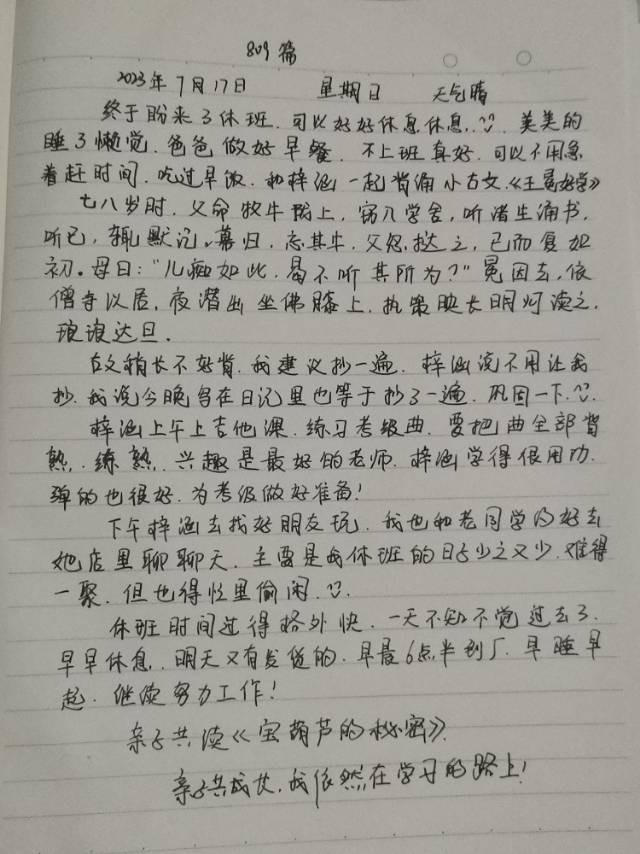 809篇
2023年7月17日 星期日 天气晴
终于盼来了休班.可以好好休息休息.美美的
睡了懒觉.爸爸做好早餐.不上班真好.可以不用急
着赶时间.吃过早饭.和梓涵一起背诵小古文.《王冕好学》
七八岁时.父命牧牛陇上,窃入学舍,听诸生诵书.
听已,辄默记.暮归,忘其牛,父怒挞之,已而复如
初。母曰:"儿痴如此,曷不听其所为?"冕因去,依
僧寺以居,夜潜出坐佛膝上,执策映长明灯读之.
琅琅达旦.
古文稍长不好背.我建议抄一遍.梓涵说不用让我
抄.我说今晚写在日记里也等于抄了一遍.巩固一下.
梓涵上午上吉他课.练习考级曲.要把曲全部背
熟.练熟.兴趣是最好的老师.梓涵学得很用功.
弹的也很好.为考级做好准备!
下午梓涵去找好朋友玩.我也和老同学约好去
她店里聊聊天.主要是我休班的日子少之又少.难得
一聚.但也得忙里偷闲.
休班时间过得格外快.一天不知不觉过去了.
早早休息.明天又有发货的.早晨6点半到厂.早睡早
起.继续努力工作!
亲子共读《宝葫芦的秘密》.
亲子共成长.我依然在学习的路上!